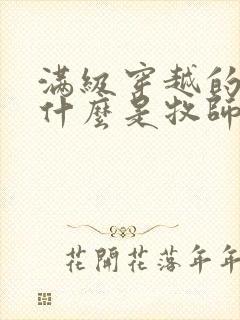 滿級穿越的
什麼是牧師
花開花落年年